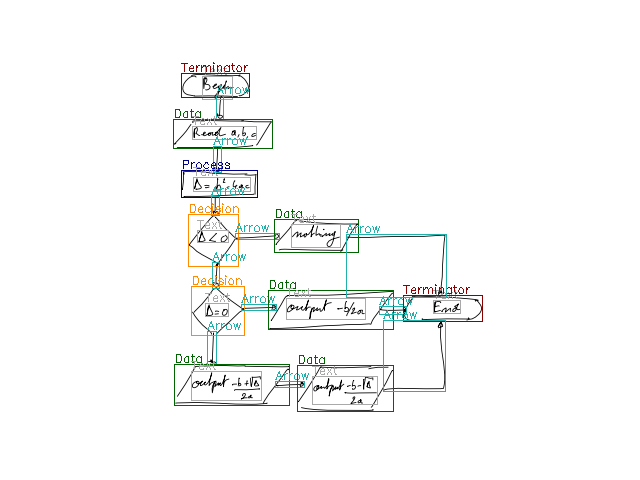 Terminator
Text
Begin
Arrow
Data
Text
Read a,b,c
Arrow
Process
Text
Δ = b² - 4ac
Arrow
Decision
Text
Δ < 0
Arrow
Data
Text
nothing
Arrow
Arrow
Decision
Text
Δ = 0
Arrow
Data
Text
output -b/2a
Arrow
Arrow
Terminator
Text
End
Arrow
Data
Text
output -b+√Δ
2a
Arrow
Data
Text
output -b-√Δ
2a